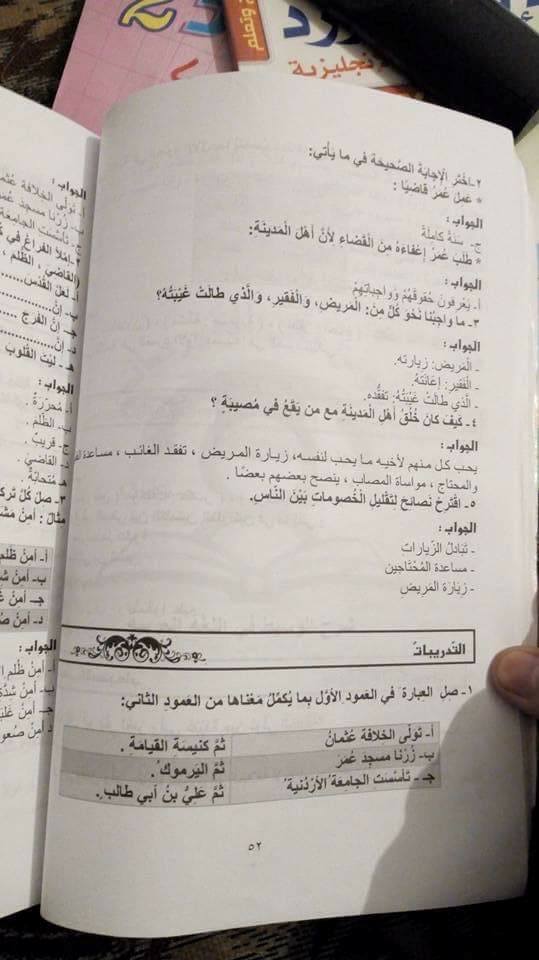 وتعلم
الإنجليزية
٢-اختر الإجابة الصحيحة في ما يأتي:
* عمل عمر قاضيًا :
الجواب :
ج- سنة كاملة
* طلب عمر إعفاءه من القضاء لأن أهل المدينة:
الجواب :
أ- يعرفون حقوقهم وواجباتهم
٣- ما واجبنا نحو كل من: المريض، والفقير، والذي طالت غيبته؟
الجواب :
- المريض: زيارته.
- الفقير: إعانته.
- الذي طالت غيبته: تفقده.
٤- كيف كان خلق أهل المدينة مع من يقع في مصيبة ؟
الجواب :
يحب كل منهم لأخيه ما يحب لنفسه، زيارة المريض ، تفقد الغائب ، مساعدة
والمحتاج ، مواساة المصاب ، ينصح بعضهم بعضا .
٥- اقترح نصائح لتقليل الخصومات بين الناس.
الجواب :
- تبادل الزيارات
- مساعدة المحتاجين
- زيارة المريض
التدريبات
١- صل العبارة في العمود الأول بما يكمل معناها من العمود الثاني:
أ- تولى الخلافة عثمان ثم كنيسة القيامة .
ب- زرنا مسجد عمر ثم اليرموك .
جـ - تأسست الجامعة الأردنية ثم علي بن أبي طالب .
٥٢
الجواب :
أ- تولى الخلافة عثما
ب- زرنا مسجد عمر
ج- تأسست الجامعة
(القاضي، الظلم ،
أ- لعل القدس
ب- إن
جـ- إن الفرج
د- إن
هـ - ليت القلوب
الجواب :
أ- محررة .
ب- الظلم .
ج- قريب .
د- القاضي .
هـ متحابة .
٣- صل كل ترك
مثال : أمن مش
أ- أمن ظلم
ب- أمن ش
جـ- أمن
د- أمن ص
الجواب :
أ- أمن ظلم
ب- أمن شدة
جـ- أمن غلب
د- أمن صعو